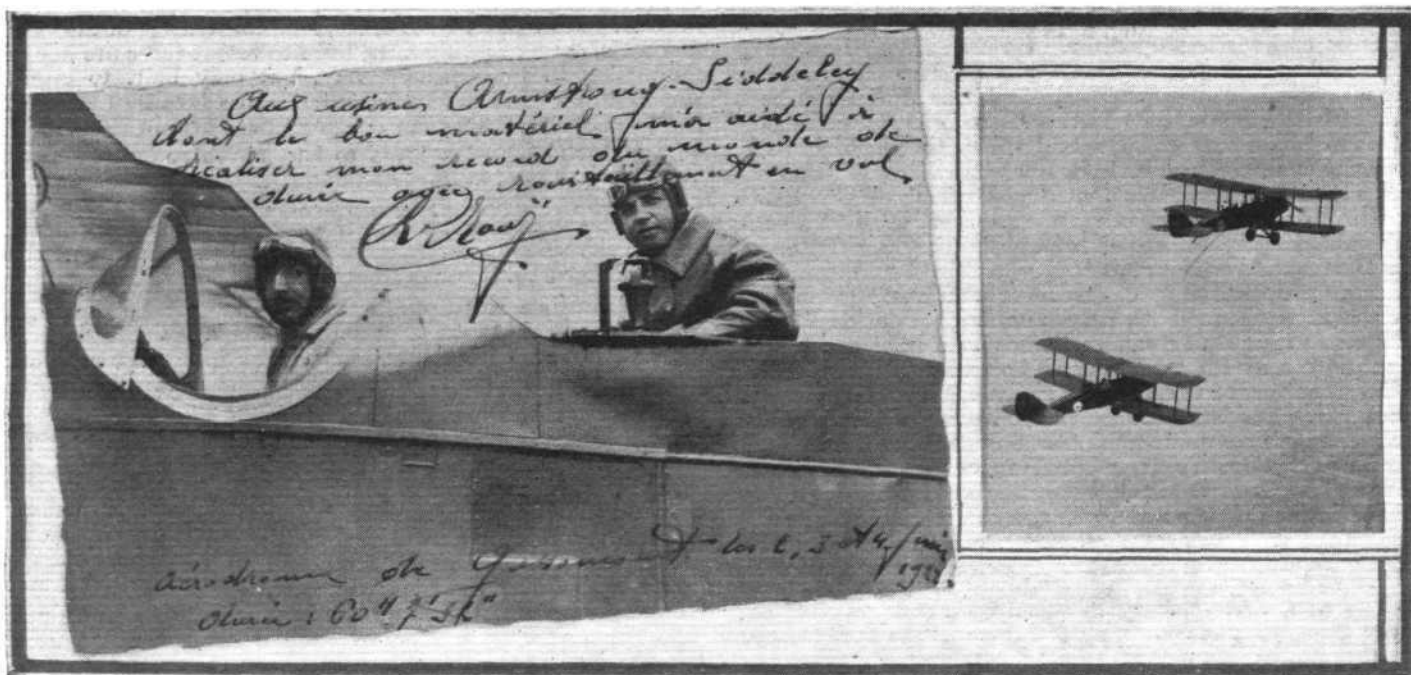 Aux usines Armstrong-Siddeley
dont le bon matériel m'a aidé à
réaliser mon record du monde de
durée avec ravitaillement en vol
Aérodrome de les 2, 3 et 4 juin
1928.
durée : 60 h 7' 32"